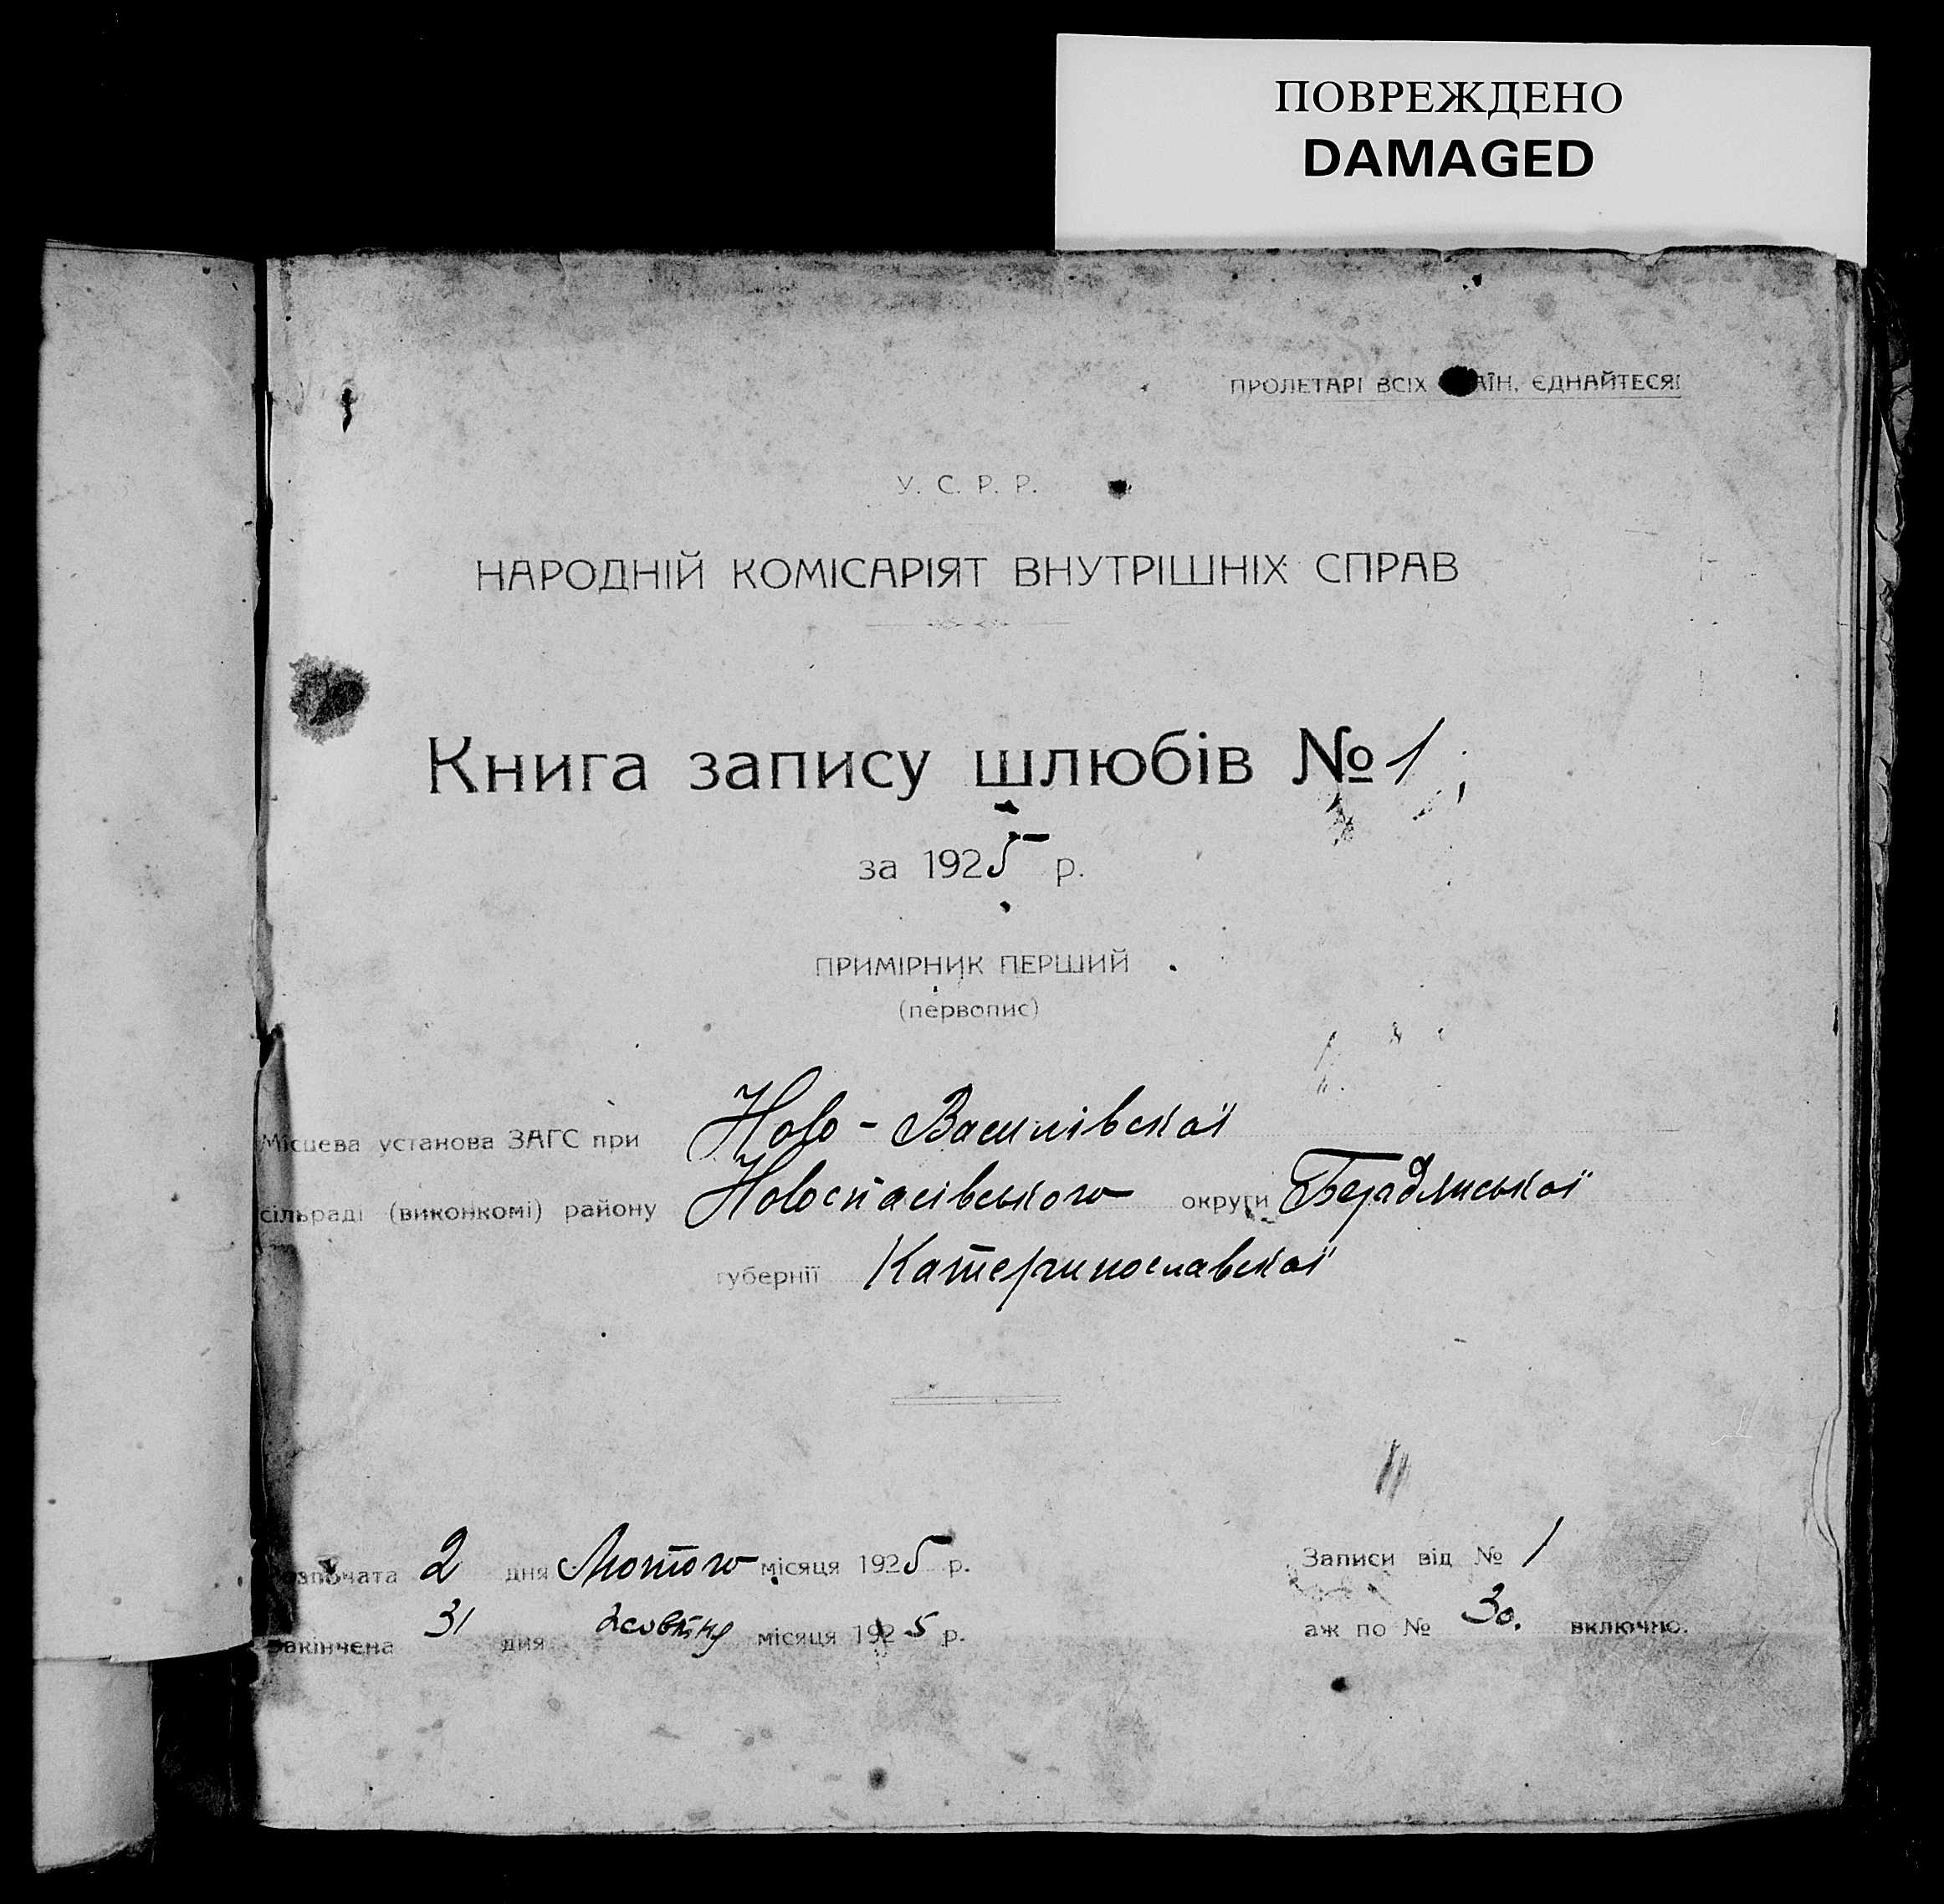 ПОВРЕЖДЕНО
DAMAGED
ПРОЛЕТАРІ ВСІХ АЇН, ЄДНАЙТЕСЯ!
У. С. Р. Р.
НАРОДНІЙ КОМІСАРІЯТ ВНУТРІШНІХ СПРАВ
Книга запису шлюбів № 1
за 1925 р.
ПРИМІРНИК ПЕРШИЙ
(первопис)
Місцева установа ЗАГС при Ново-Василівскої
сільраді (виконкомі) району Новоспасівського округи Бердянської
губернії Катеринославскої
Розпочата 2 дня Лютого місяця 1925 р. Записи від № 1
Закінчена 31 дня жовтня місяця 1925 р. аж по № 30. включно.